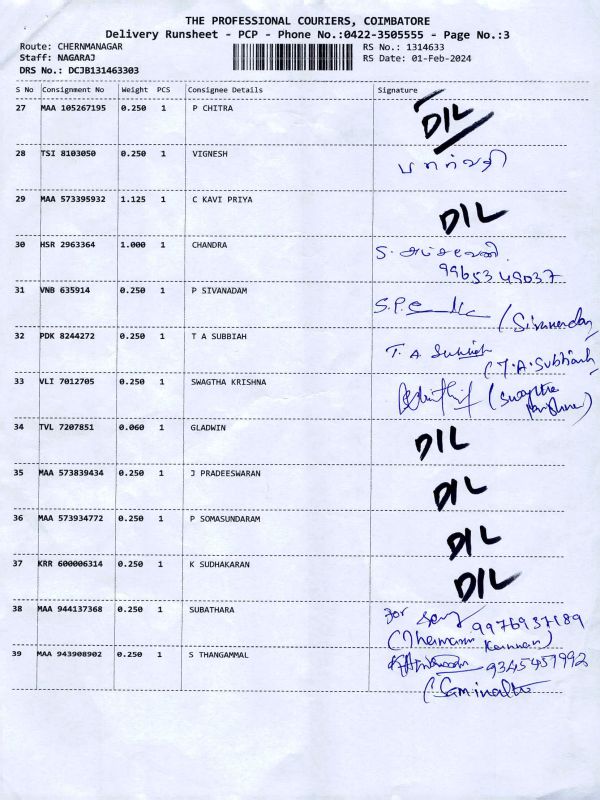 THE PROFESSIONAL COURIERS, COIMBATORE
Delivery Runsheet - PCP - Phone No.:0422-3505555 - Page No.:3
Route: CHERNMANAGAR RS No.: 1314633
Staff: NAGARAJ RS Date: 01-Feb-2024
DRS No.: DCJB131463303
S No Consignment No Weight PCS Consignee Details Signature
27 MAA 105267195 0.250 1 P CHITRA D/L
28 TSI 8103050 0.250 1 VIGNESH பார்வதி
29 MAA 573395932 1.125 1 C KAVI PRIYA D/L
30 HSR 2963364 1.000 1 CHANDRA S.
9965349037
31 VNB 635914 0.250 1 P SIVANADAM S.P.
32 PDK 8244272 0.250 1 T A SUBBIAH T. A Subbiah
(T.A.Subbiah)
33 VLI 7012705 0.250 1 SWAGTHA KRISHNA
34 TVL 7207851 0.060 1 GLADWIN D/L
35 MAA 573839434 0.250 1 J PRADEESWARAN D/L
36 MAA 573934772 0.250 1 P SOMASUNDARAM D/L
37 KRR 600006314 0.250 1 K SUDHAKARAN D/L
38 MAA 944137368 0.250 1 SUBATHARA for 9976937189
39 MAA 943908902 0.250 1 S THANGAMMAL 9345457992